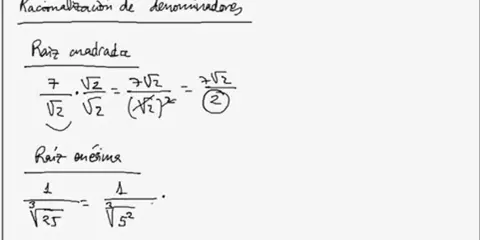 Racionalización de denominadores
Raiz cuadrada
7/√2 · √2/√2 = 7√2/(√2)² = 7√2/2
Raíz enésima
1/∛25 = 1/∛5² ·